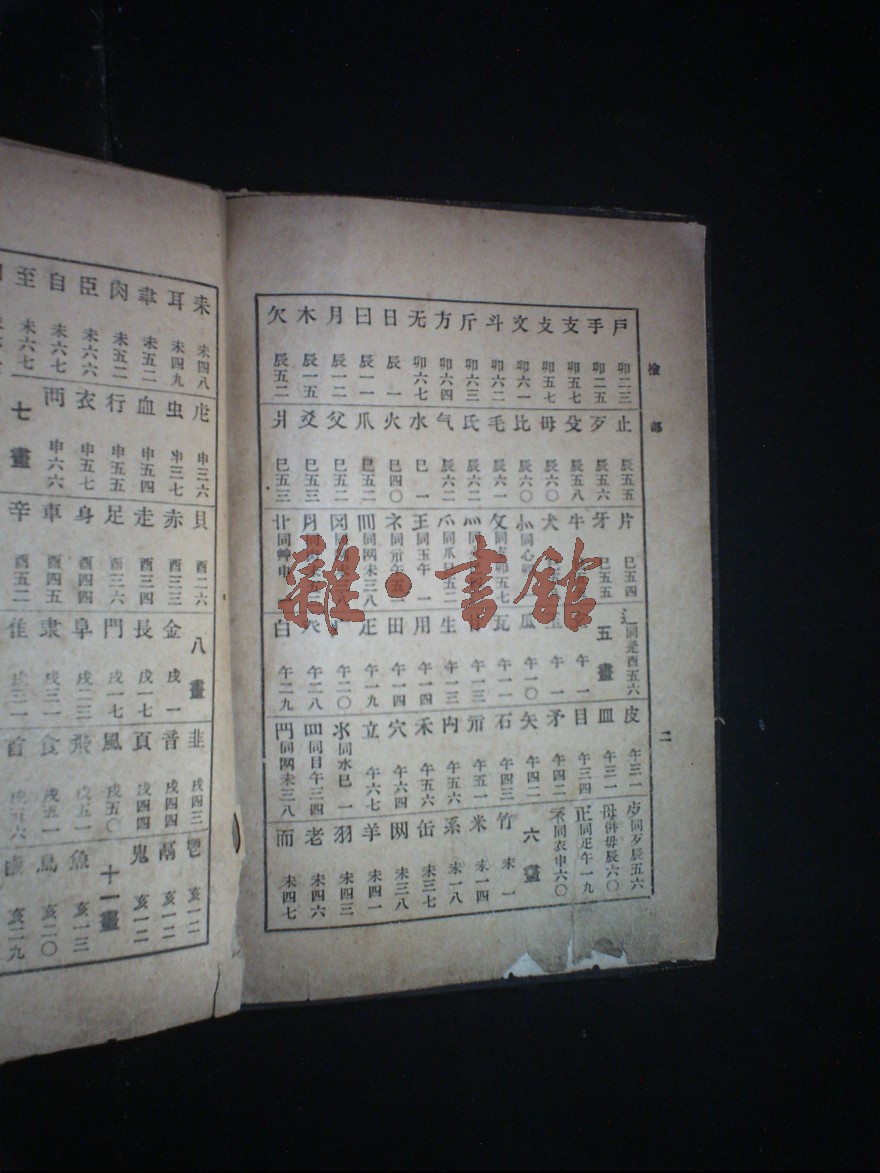 檢部
二
戶 卯二三
手 卯二五
支 卯五七
攴 卯五七
文 卯六一
斗 卯六二
斤 卯六三
方 卯六四
无 卯六七
日 辰一
曰 辰一一
月 辰一二
木 辰一五
欠 辰五二
止 辰五五
歹 辰五六
殳 辰五八
毋 辰六〇
比 辰六〇
毛 辰六一
氏 辰六二
气 辰六二
水 巳一
火 巳四〇
爪 巳五二
父 巳五二
爻 巳五三
爿 巳五三
片 巳五四
牙 巳五五
牛
犬
㣺同心
攵同攴卯五七
灬同
爫同爪巳五二
王同玉午一
礻同示午五一
罒同网未三八
艹同艸申
辶同辵酉五六
五畫
午一
瓜 午一〇
瓦 午一一
午一三
生 午一三
用 午一四
田 午一四
疋 午一九
午二〇
癶 午二八
白 午二九
皮 午三一
皿 午三一
目 午三四
矛 午四二
矢 午四二
石 午四三
示 午五一
禸 午五六
禾 午五六
穴 午六四
立 午六七
氺同水巳一
罒同目午三四
同网未三八
歺同歹辰五六
母併毋辰六〇
同疋午一九
同衣申六〇
六畫
竹 未一
米 未一四
糸 未一八
缶 未三七
网 未三八
羊 未四一
羽 未四三
老 未四六
而 未四七
耒 未四八
耳 未四九
聿 未五二
肉 未五二
臣 未六六
自 未六七
至 未六七
虍 申三六
虫 申三七
血 申五四
行 申五五
衣 申五七
襾 申六六
七畫
貝 酉二六
赤 酉三三
走 酉三四
足 酉三六
身 酉四四
車 酉四五
辛 酉五二
八畫
金 戌一
長 戌一七
門 戌一七
阜 戌二三
隶 戌三一
隹
韭 戌四三
音 戌四四
頁 戌四四
風 戌五〇
飛 戌五一
食 戌五一
首
鬯 亥一二
鬲 亥一二
鬼 亥一二
十一畫
魚 亥一三
鳥 亥二〇
鹵 亥二九
雜·書館